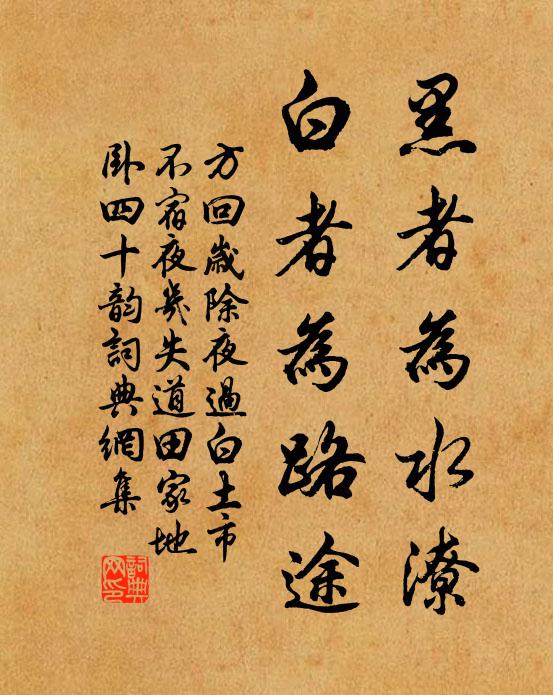 黑者為水潦
白者為路途
方回歲除夜過白土市
不宿夜幾失道田家地
卧四十韵詞典網集
詞典网印